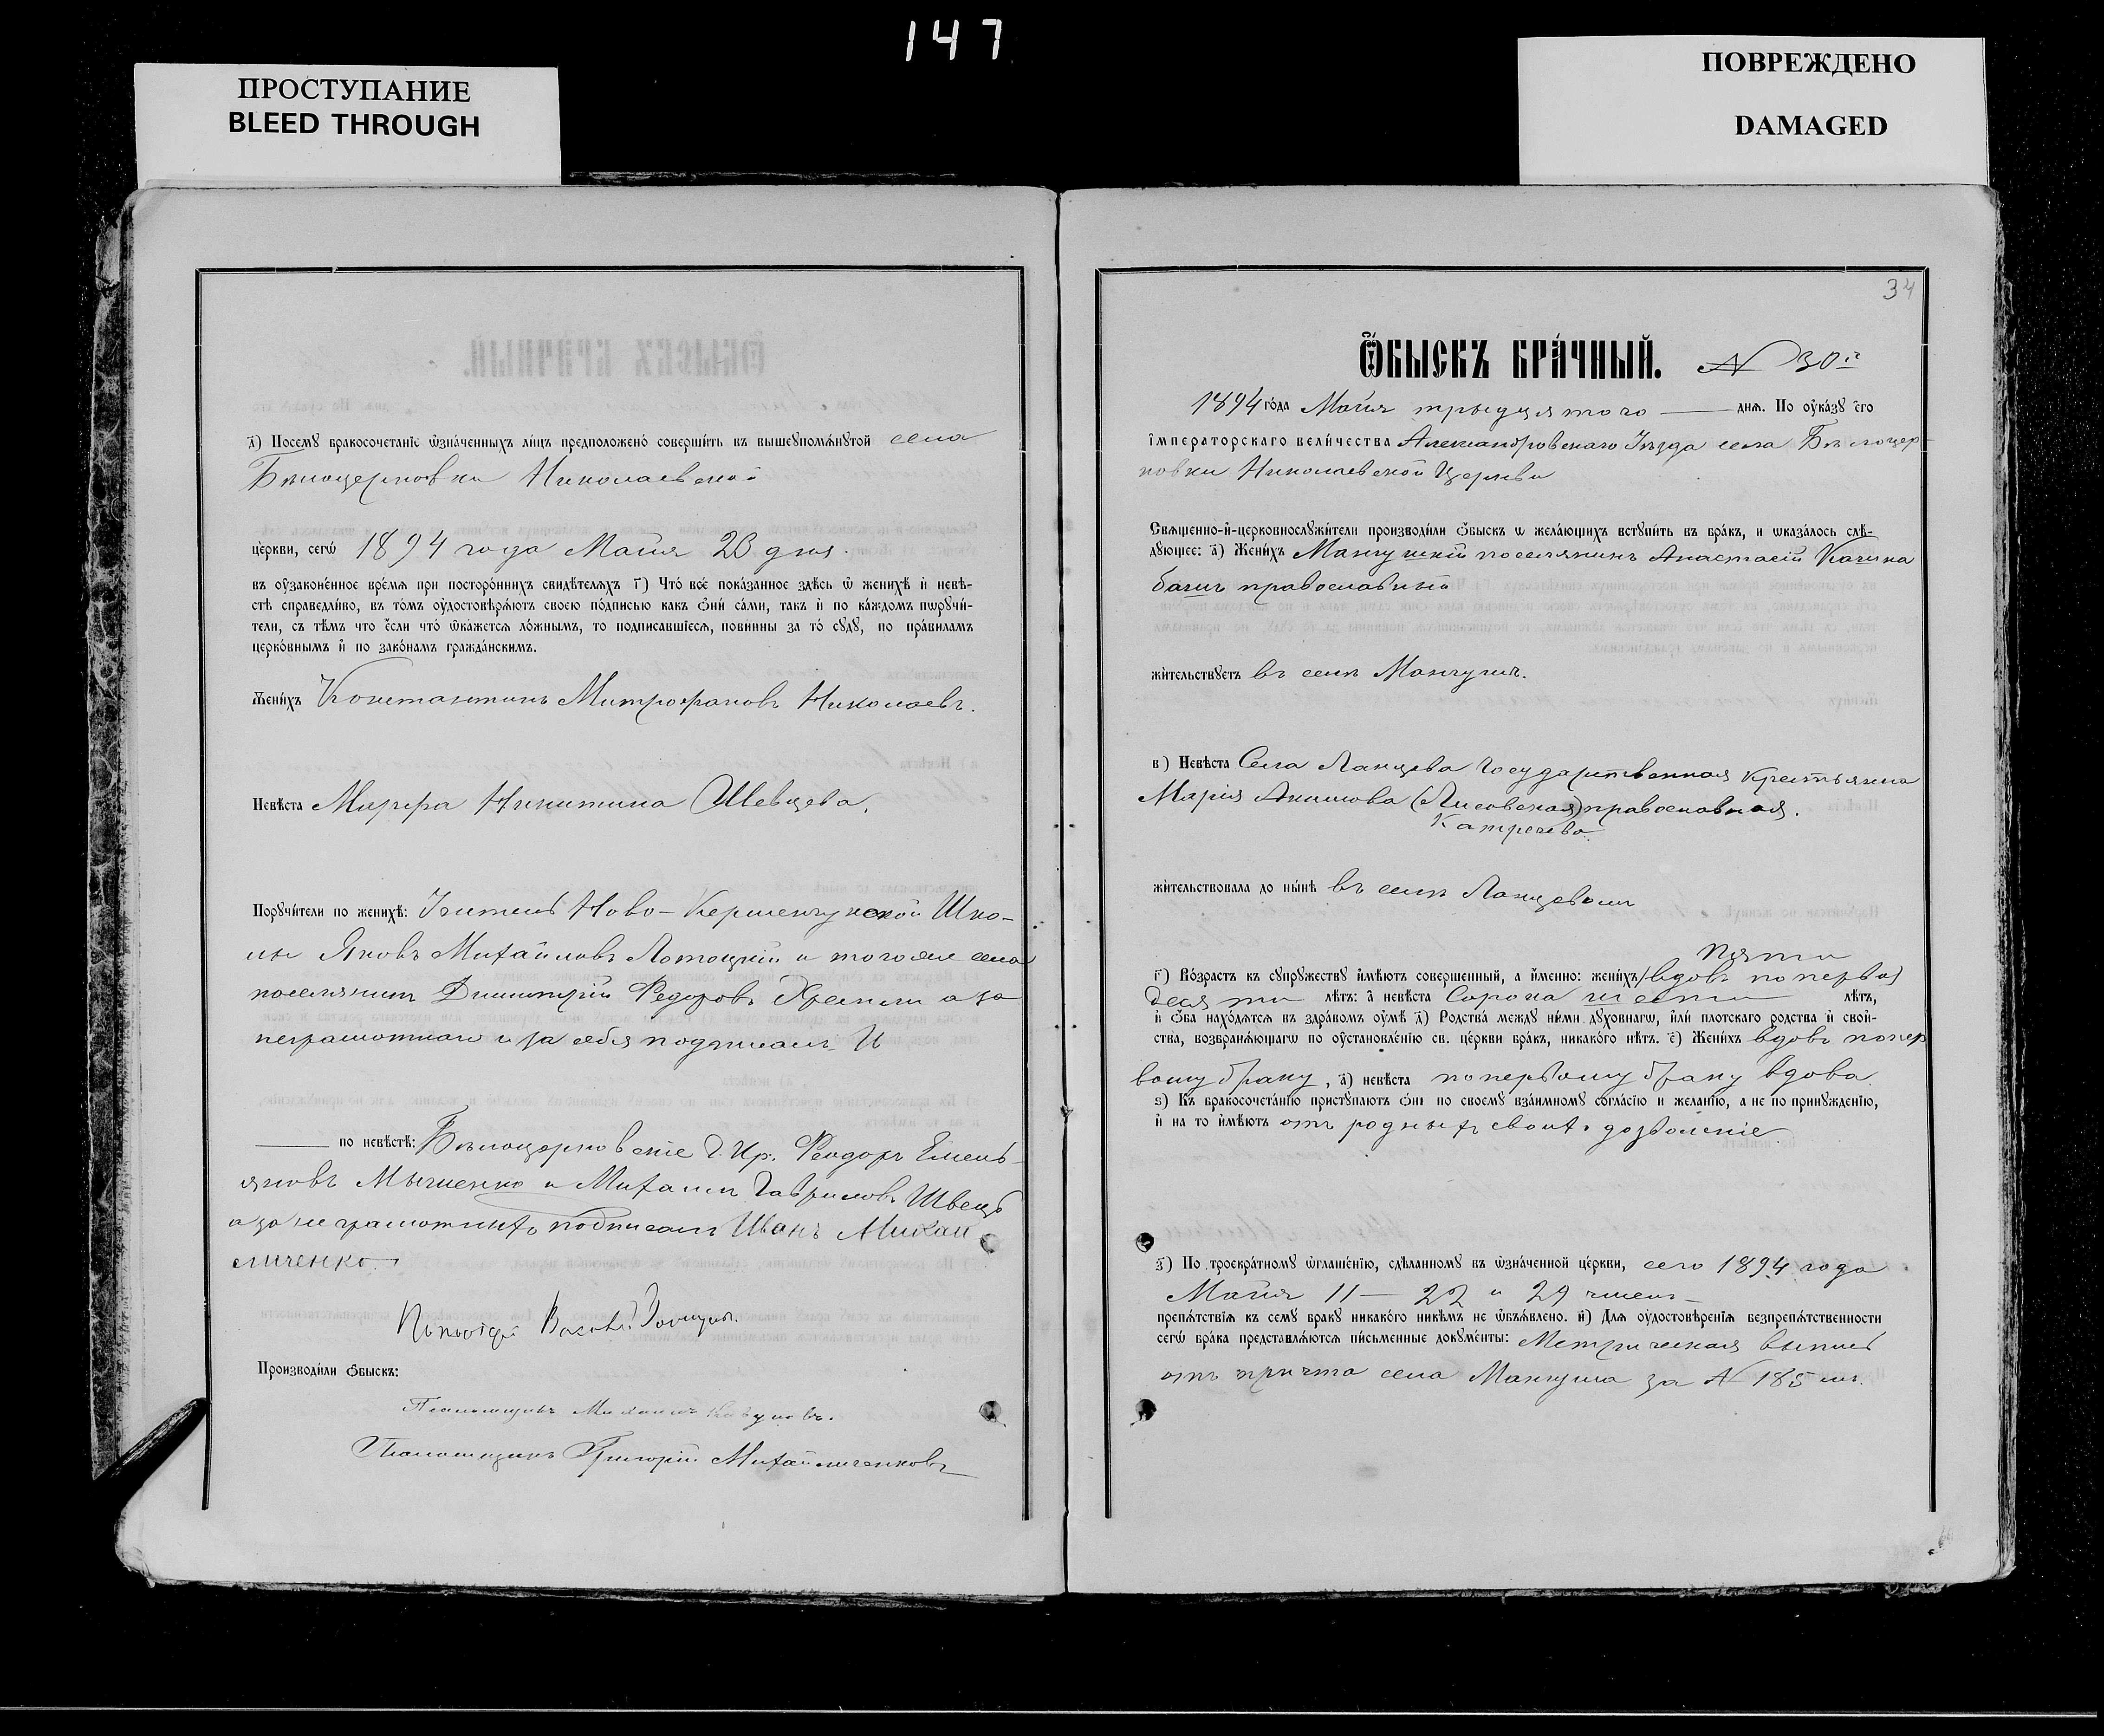 147
ПРОСТУПАНИЕ
BLEED THROUGH
ПОВРЕЖДЕНО
DAMAGED
д҃) Посемꙋ бракосочетанїе ѡ҆зна́ченныхъ ли́цъ предположено̀ соверши́ть въ вышеꙋпомѧ́нꙋтой села
Бѣлоцерковки Николаевской
це́ркви, сегѡ̀ 1894 года Мaiя 23 дня.
въ оу҆зако́ненное вре́мѧ при посторо́ннихъ свидѣ́телѧхъ г҃) Что́ всѐ пока́занное здѣ́сь ѡ҆ женихѣ̀ и҆ невѣ́-
стѣ справедли́во, въ то́мъ оу҆достовѣрѧ́ютъ своею по́дписью какъ ѻ҆нѝ са́ми, такъ и҆ по ка́ждомъ порꙋчи́-
тели, съ тѣ́мъ что є҆́сли что́ ѡ҆ка́жетсѧ ло́жнымъ, то подписавшїесѧ, пови́нны за то́ сꙋдꙋ̀, по пра́виламъ
церко́внымъ и҆ по зако́намъ гражда́нскимъ.
Жени́хъ Константинъ Митрофановъ Николаевъ.
Невѣ́ста Марфа Никитина Шевцева.
Порꙋчи́тели по женихѣ̀: Учитель Ново-Керменчукской Шко-
лы Яковъ Михайловъ Лотоцкій и тогоже села
поселянинъ Димитрій Федоровъ а за
неграмотнаго и за себя подписалъ
по невѣ́стѣ: Бѣлоцерковскіе Г. Кр. Феодоръ Емель-
яновъ и Михаилъ Гавриловъ Швецъ
а за неграмотныхъ подписалъ Иванъ Михай
личенко
Производи́ли ѻ҆́быскъ:
Псаломщикъ Михаилъ
Псаломщикъ Григорій Михайличенковъ
34
Ѻ҆́БЫСКЪ БРА́ЧНЫЙ. N 30й
1894 го́да Мaiя тридцятого днѧ. По оу҆ка́зꙋ є҆го̀
і҆мператорскаго вели́чества Александровскаго Уѣзда села Бѣлоцер-
ковки Николаевской Церкви
Свѧщенно-и҆-церковнослꙋжи́тели производи́ли ѻ҆́быскъ ѡ҆ жела́ющихъ встꙋпи́ть въ бра́къ, и ѡ҆каза́лось слѣ́-
дꙋющее: а҃) Жени́хъ Мангушскій поселянинъ Анастасій Качка
багиъ православный
жи́тельствꙋетъ въ селѣ Мангушѣ.
в҃) Невѣ́ста Села Ланцева Государственная Крестьянка
Марія Акимова (Лисовская) православная.
жи́тельствовала до ны́нѣ въ селѣ Ланцевомъ
Пяти
г҃) Во́зрастъ къ сꙋпрꙋ́жествꙋ и҆мѣ́ютъ соверше́нный, а и҆́менно: жени́хъ (вдовъ по перво)
десяти лѣтъ: а҆ невѣ́ста Сорока шести лѣтъ,
и҆ ѻ҆́ба нахо́дѧтсѧ въ здра́вомъ оу҆мѣ̀ д҃) Родства̀ междꙋ ни́ми дꙋхо́внагѡ, и҆лѝ плотскаго родства̀ и҆ свой-
ства̀, возбранѧ́ющагѡ по оу҆становле́нїю св. це́ркви бра́къ, никако́го нѣ́тъ. е҃) Жени́хъ вдовъ попер
вому браку, а҆) невѣ́ста попервому браку вдова
ѕ҃) Къ бракосочета́нїю пристꙋпа́ютъ ѻ҆нѝ по своемꙋ взаи́мномꙋ согла́сїю и жела́нїю, а не по принꙋжде́нїю,
и҆ на то и҆мѣ́ютъ отъ родныхъ своихъ дозволеніе
з҃) По троекра́тномꙋ ѡ҆глаше́нїю, сдѣ́ланномꙋ въ ѡ҆зна́ченной це́ркви, сего 1894 года
Мaiя 11 — 22 и 29 числъ —
препѧ́тствїѧ къ семꙋ̀ бра́кꙋ никако́го никѣ́мъ не ѡ҆бъѧ́влено. и҃) Длѧ оу҆достовѣ́ренїѧ безпрепѧ́тственности
сегѡ̀ бра́ка представлѧ́ютсѧ пи́сьменные докꙋме́нты: Метрическая выпись
отъ причта села Мангуша за N 185 мъ.